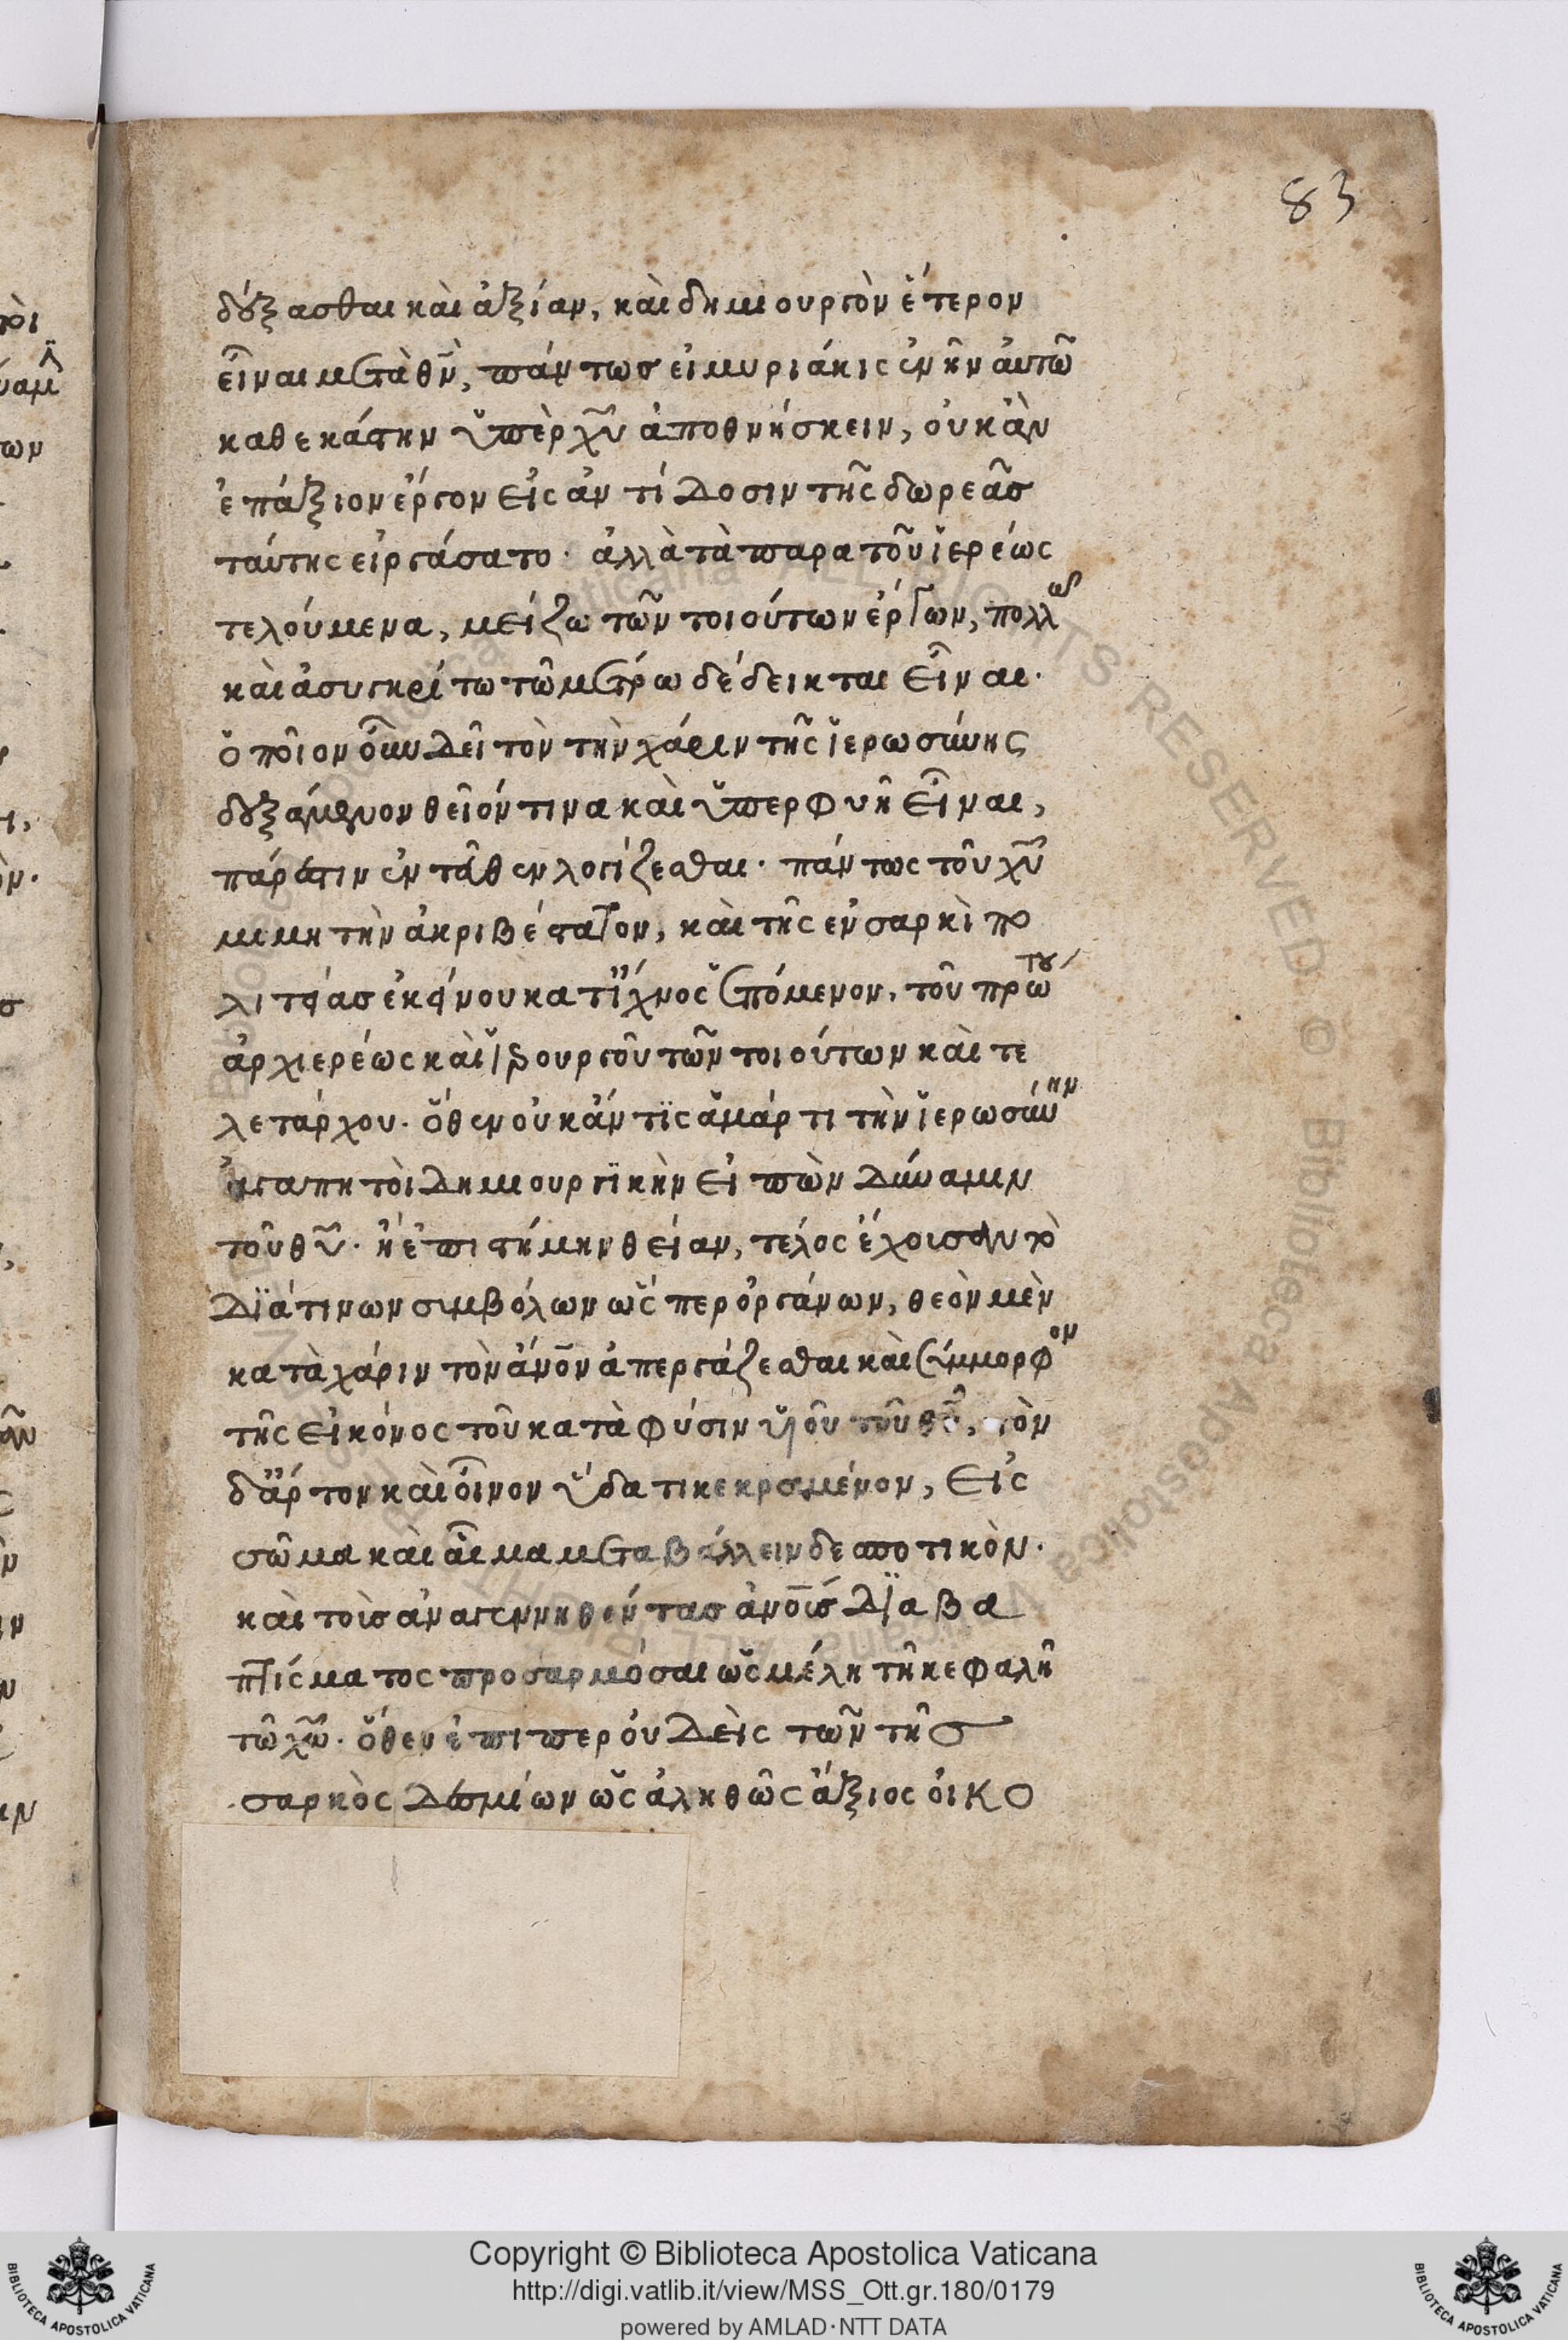 83
δέξασθαι καὶ ἀξίαν, καὶ δημιουργὸν ἕτερον
εἶναι μετὰ θν̅, πάντως εἰ μυριάκις ἐνῆν αὐτῶ
καθεκάστην ὑπὲρ χυ̅ ἀποθνήσκειν, οὐκ ἂν
ἐπάξιον ἔργον εἰς ἀντίδοσιν τῆς δωρεᾶς
ταύτης εἰργάσατο· ἀλλὰ τὰ παρα τοῦ ἱερέως
τελούμενα, μείζω τῶν τοιούτων ἔργων, πολλῶ
καὶ ἀσυγκρίτω τῶ μέτρω δέδεικται εἶναι·
ὁποῖον οὖν δεῖ τὸν τὴν χάριν τῆς ἱερωσύνης
δεξάμενον θεῖόν τινα καὶ ὑπερφυῆ εἶναι,
πάρεστιν ἐνταῦθεν λογίζεσθαι· πάντως τοῦ χυ̅
μιμητὴν ἀκριβέστατον, καὶ τῆς ἐν σαρκὶ πο
λιτείας ἐκείνου κατίχνος ἑπόμενον, τοῦ πρώτου
ἀρχιερέως καὶ ἱερουργοῦ τῶν τοιούτων καὶ τε
λετάρχου· ὅθεν οὐκ ἄν τις ἁμάρτι τὴν ἱερωσύνην
ἀγαπητοὶ δημιουργικὴν εἰπὼν δύναμιν
τοῦ θυ̅· ἢ ἐπιστήμην θείαν, τέλος ἔχουσαν τὸ
διά τινων συμβόλων ὥσπερ ὀργάνων, θεὸν μὲν
κατὰ χάριν τὸν ἄνον̅ ἀπεργάζεσθαι καὶ σύμμορφον
τῆς εἰκόνος τοῦ κατὰ φύσιν υἱοῦ τοῦ θυ̅, τὸν
δ' ἄρτον καὶ οἶνον ὕδατι κεκραμένον, εἰς
σῶμα καὶ αἷμα μεταβάλλειν δεσποτικὸν·
καὶ τοῖς ἀναγεννηθέντας ἀνοις̅ διὰ βα
πτίσματος προσαρμόσαι ὡς μέλη τῆ κεφαλῆ
τῶ χω̅· ὅθεν ἐπιπερ οὐδεὶς τῶν τῆς
σαρκὸς δεσμίων ὡς ἀληθῶς ἄξιος οἰκο
Copyright © Biblioteca Apostolica Vaticana
http://digi.vatlib.it/view/MSS_Ott.gr.180/0179
powered by AMLAD·NTT DATA